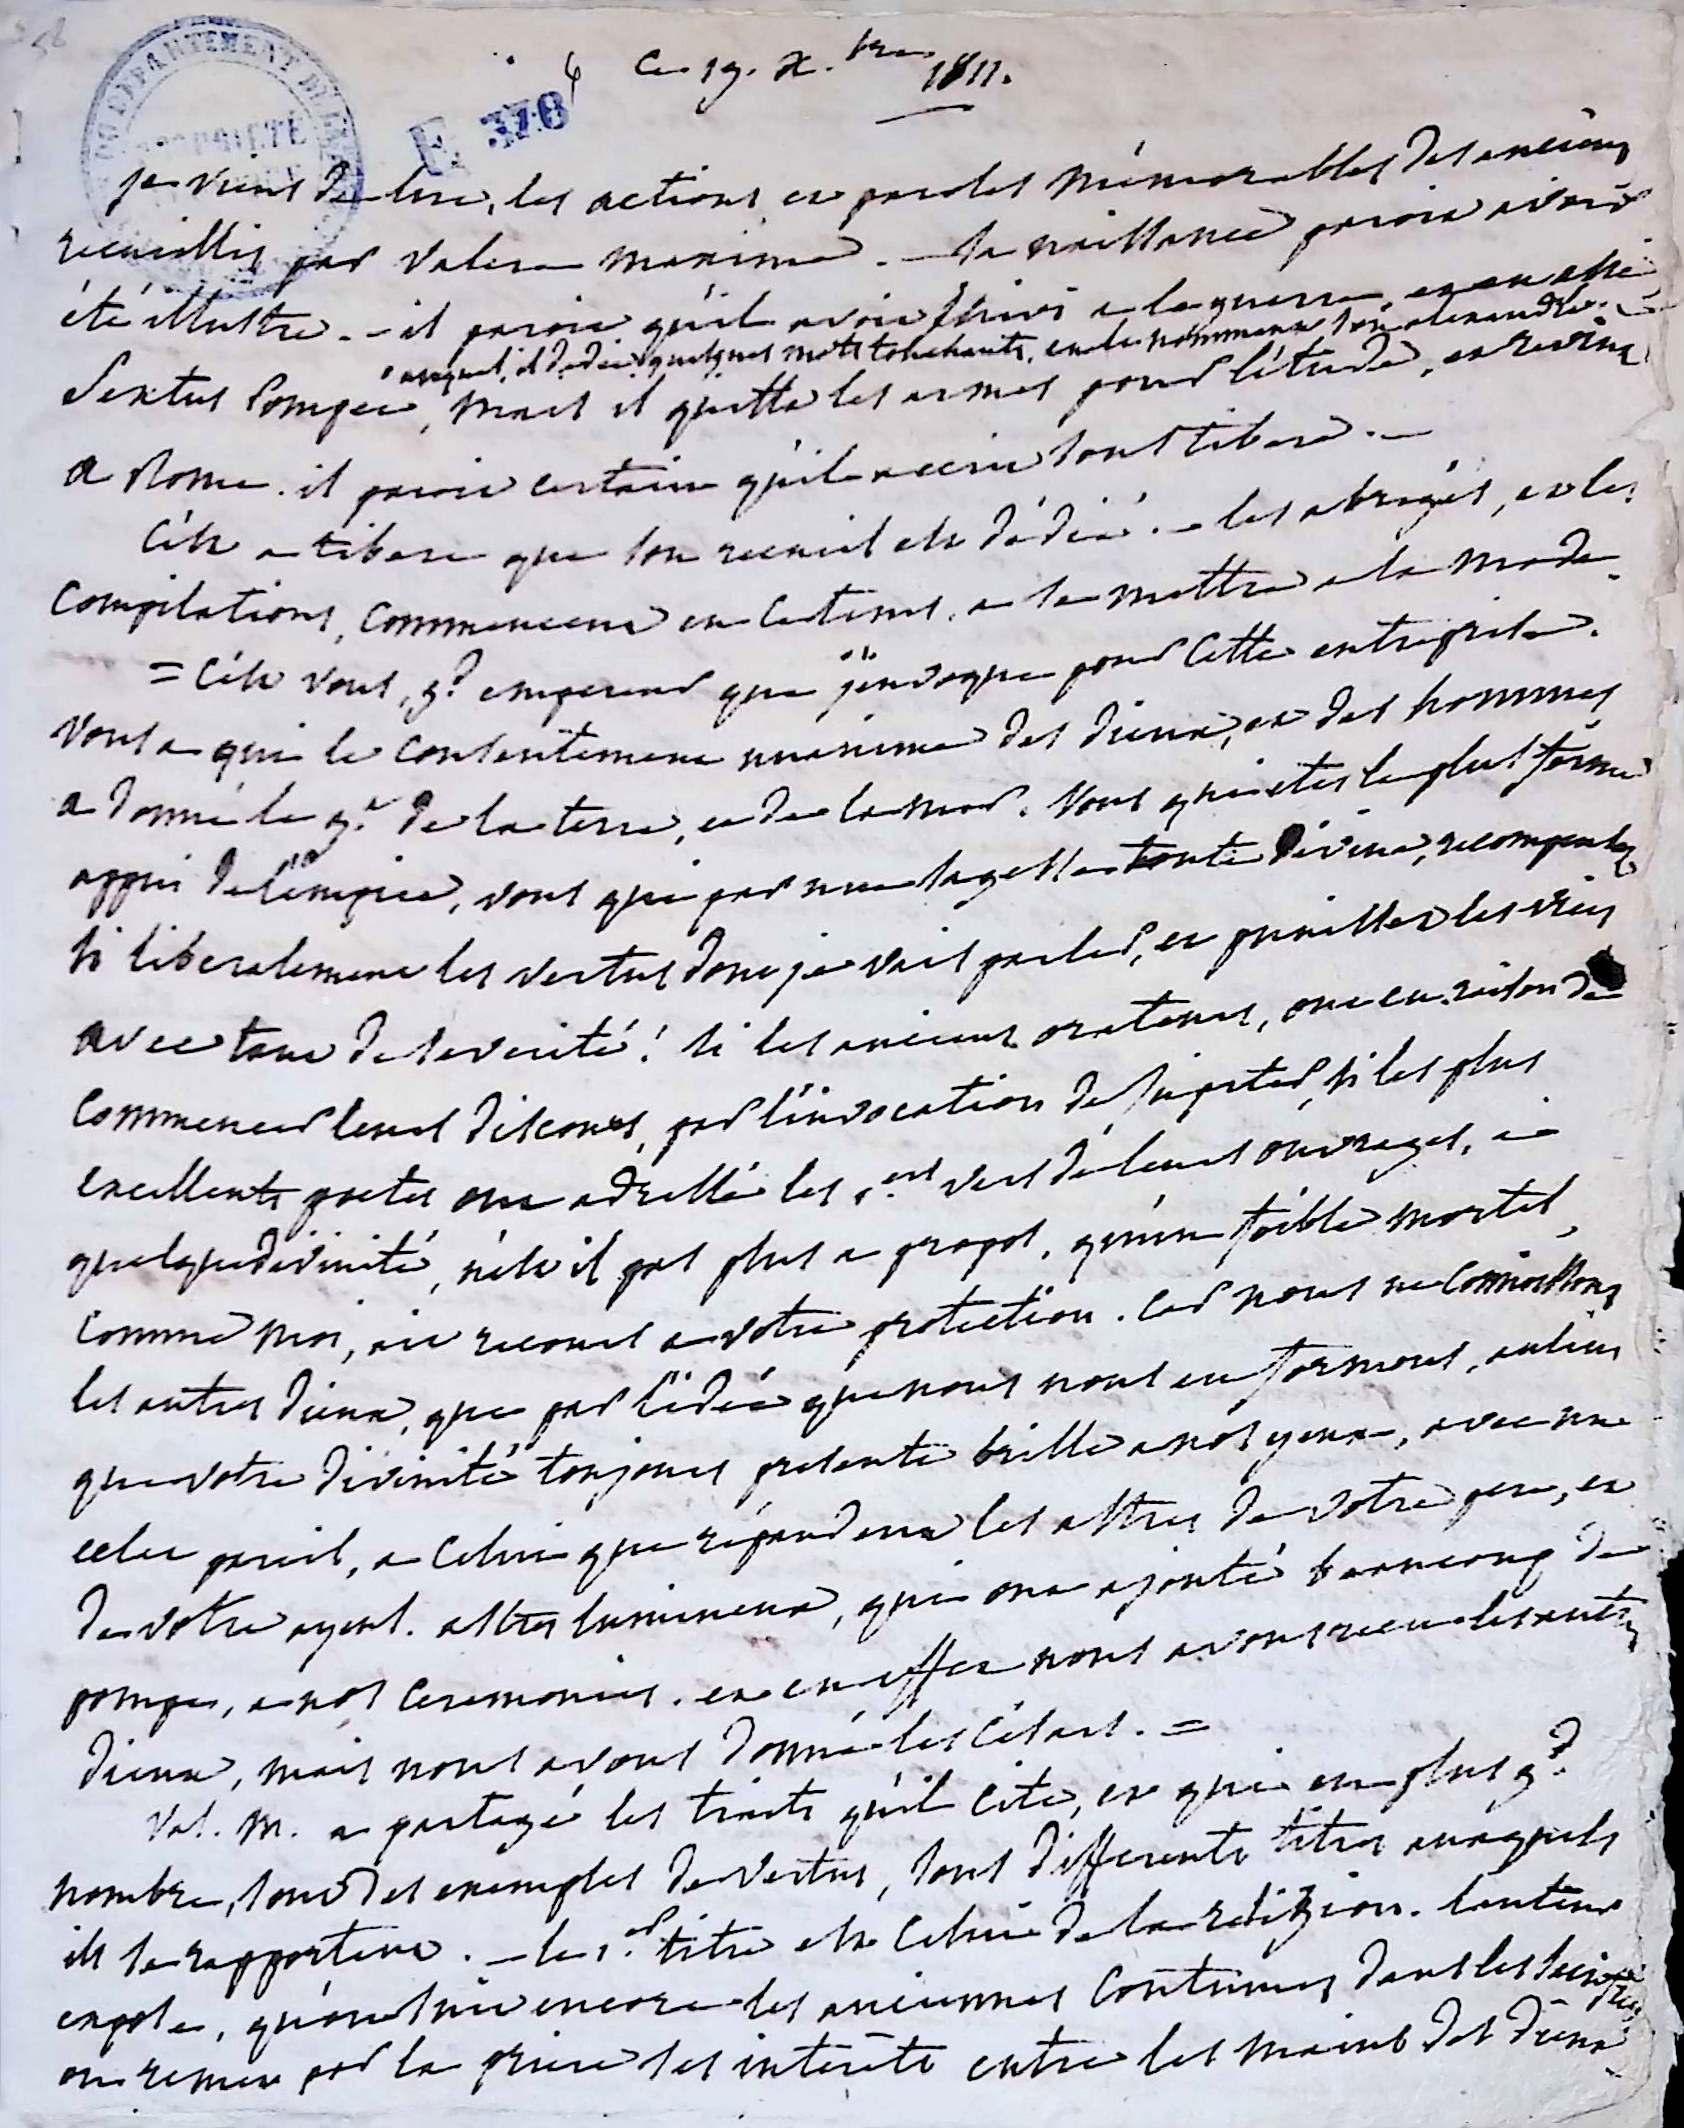 Ce 19. X.bre 1811.
E 378
je viens de lire, les actions et paroles mémorables des anciens
recueillis par Valere maxime. — sa naissance paroit avoir
été illustre. — il paroit qu'il avoit suivi a la guerre, en asie
auquel, il dedie quelques mots touchants, en le nommant son alexandre.
Sextus Pompée, mais il quitta les armes pour l'étude, et revint
a Rome. il paroit certain qu'il a ecrit sous tibere. —
C'est a tibere que son recueil est dédié. — les abrégés, et les
compilations, commencent en ce tems, a se mettre a la mode.
= C'est vous, gd empereur que j'invoque pour cette entreprise.
vous a qui le consentement unanime des dieux, et des hommes
a donné le gt de la terre, et de la mer. Vous qui etes le plus ferme
appui de l'empire, vous qui par une sagesse toute divine, recompensez
si liberalement les vertus dont je vais parler, et punissez les vices
avec tant de severité! si les anciens orateurs, ont eu raison de
commencer leurs discours, par l'invocation de Jupiter, si les plus
excellents poetes ont adressé les 1.ers vers de leurs ouvrages, a
quelque divinité, n'est il pas plus a propos, qu'un foible mortel,
comme moi, ait recours a votre protection. Car nous ne connoissons
les autres dieux, que par l'idée que nous nous en formons, au lieu
que votre divinité toujours presente brille a nos yeux, avec un
eclat pareil, a celui que répandent les astres de votre pere, et
de votre ayeul. astres lumineux, qui ont ajouté beaucoup de
pompe, a nos ceremonies. et en effet nous avons recu les autres
dieux, mais nous avons donné les Césars. =
Val. M. a partagé les traits qu'il cite, et qui en plus gd
nombre, sont des exemples de vertus, sous differents titres auxquels
ils se rapportent. — le 1.er titre est celui de la religion. l'auteur
expose, qu'on suit encore les anciennes coutumes dans les
on remet par la priere ses intérêts entre les mains des dieux